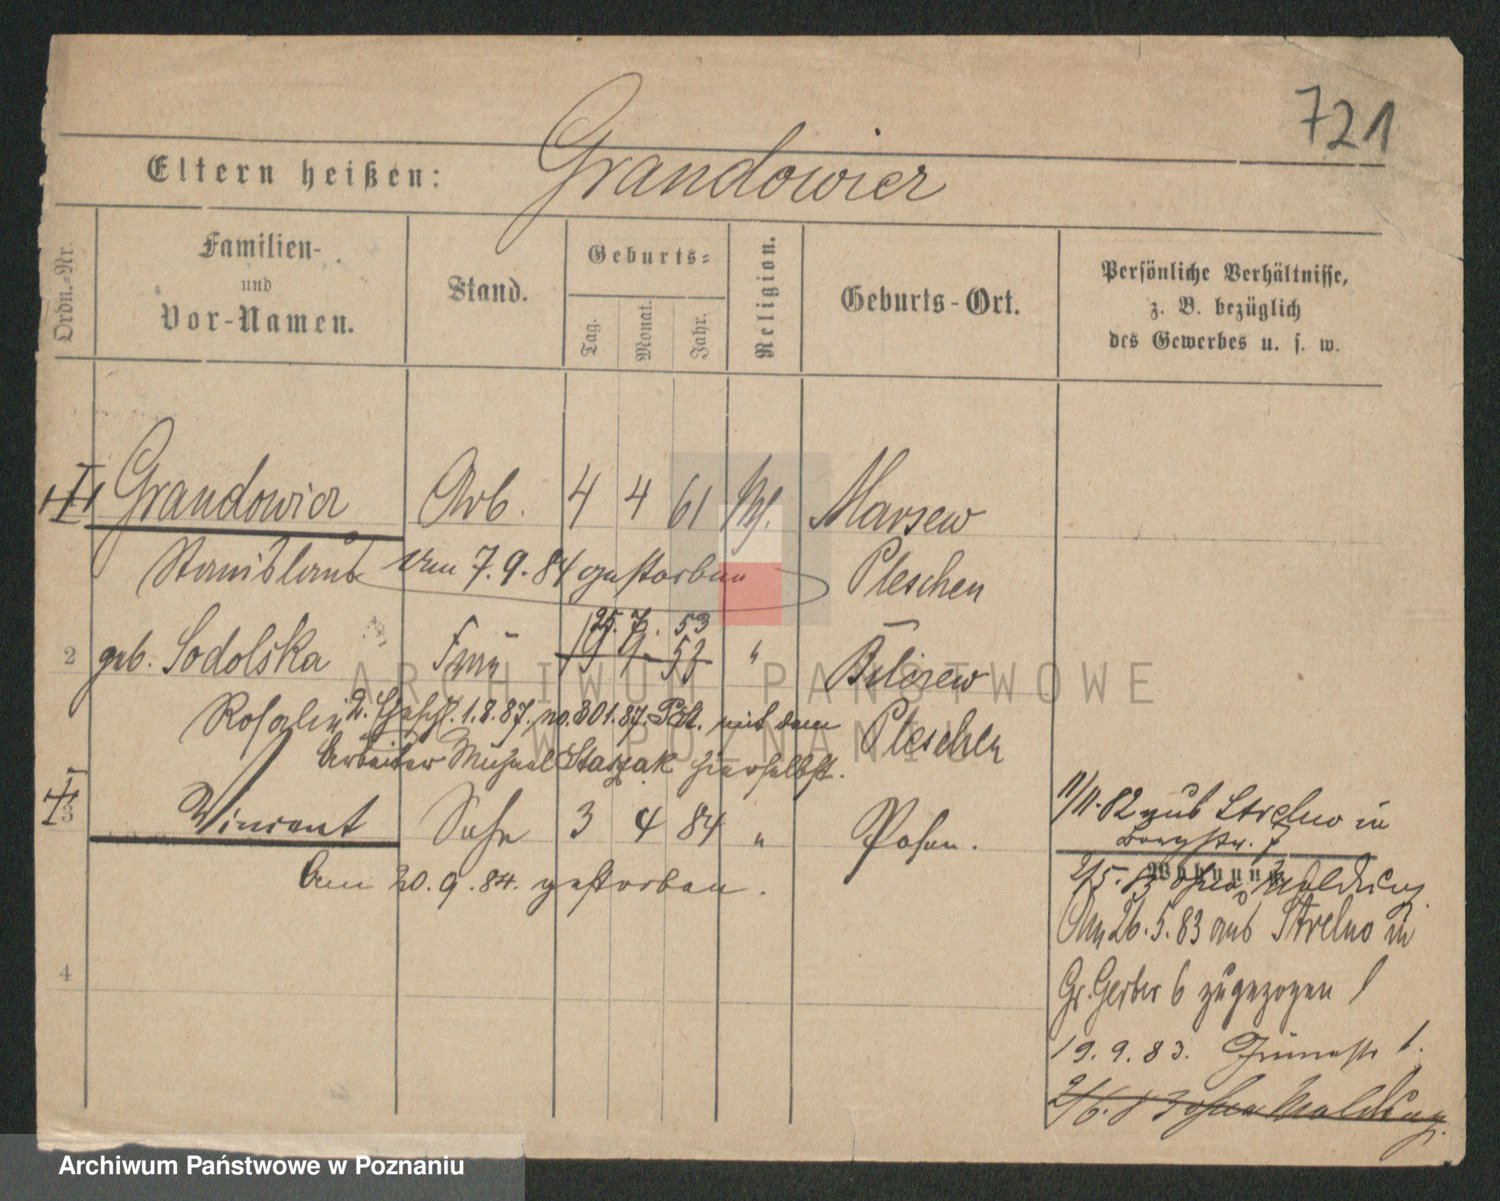 721
Eltern heißen: Grandowicz
Ordn.-Nr.
Familien-
und
Vor-Namen.
Stand.
Geburts-
Tag.
Monat.
Jahr.
Religion.
Geburts-Ort.
Persönliche Verhältnisse,
z. B. bezüglich
des Gewerbes u. s. w.
Grandowicz Arb. 4 4 61 Marsew
Stanislaus am 7.9.84 gestorben Pleschen
25. 7. 53
2 geb. Sodolska Frau 19 9. 53 "
Rosalie 2. 1.8.87. no. 801.87. mit dem Pleschen
Arbeiter Michael Staszak hierselbst.
3 Vincent Sohn 3 4 84 " Posen.
Am 20.9.84. gestorben.
11/11.82 aus Strelno in
Bergstr. 7
Wohnung.
2/5. 83 ohne Meldung.
Am 26.5.83 aus Strelno in
Gr. Gerber 6 zugezogen
19.9.83. 1.
2/6. 83 ohne Meldung.
4
ARCHIWUM PAŃSTWOWE
W POZNANIU
Archiwum Państwowe w Poznaniu